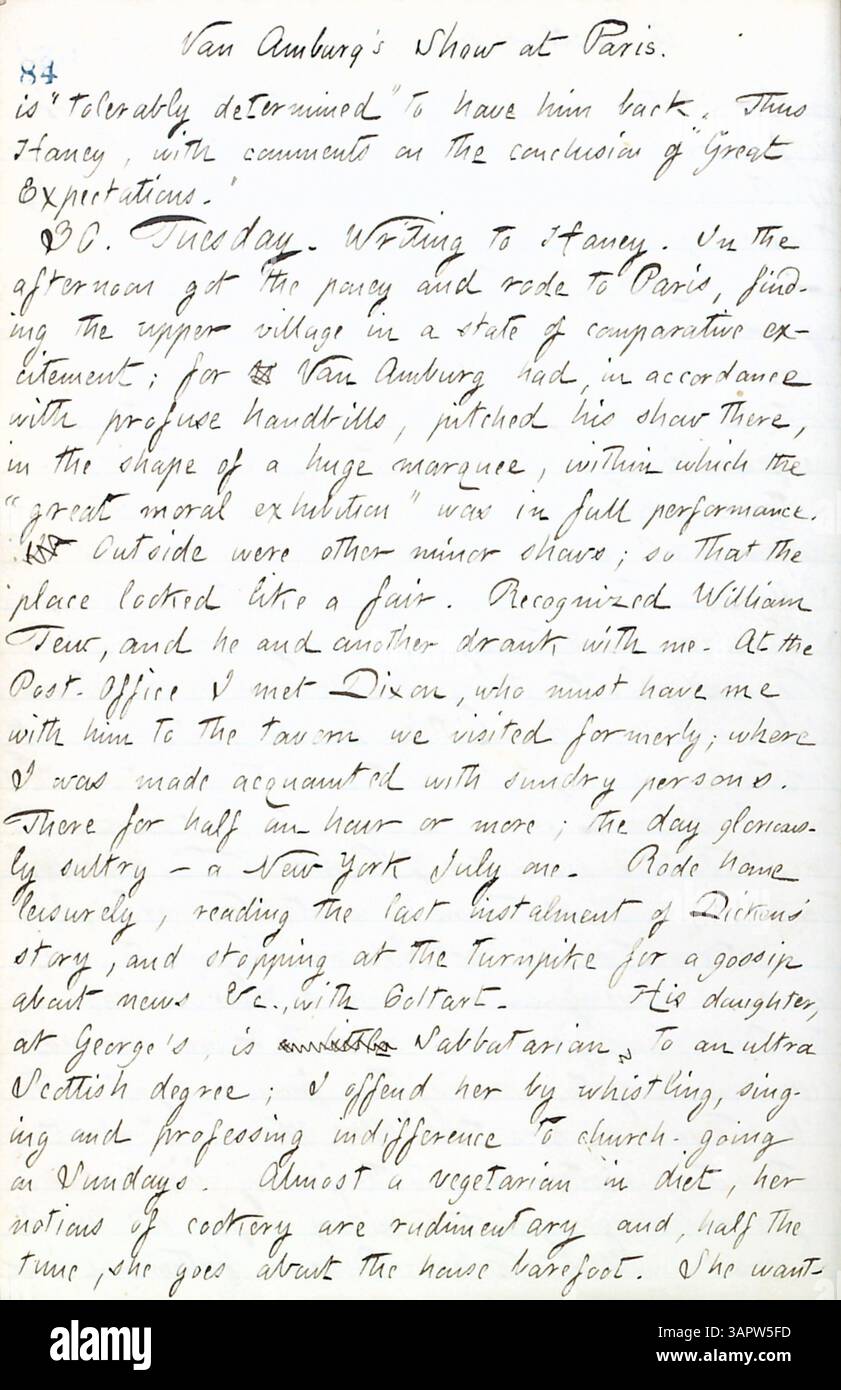 Van Amburg's Show at Paris.
84
is "tolerably determined" to have him back. Thus
Haney, with comments on the conclusion of "Great
Expectations."
30. Tuesday. Writing to Haney. In the
afternoon got the poney and rode to Paris, find-
ing the upper village in a state of comparative ex-
citement; for Van Amburg had, in accordance
with profuse handbills, pitched his show there,
in the shape of a huge marquee, within which the
"great moral exhibition" was in full performance.
Outside were other minor shows; so that the
place looked like a fair. Recognized William
Tew, and he and another drank with me. At the
Post-Office I met Dixon, who must have me
with him to the tavern we visited formerly; where
I was made acquainted with sundry persons.
There for half an hour or more; the day glorious-
ly sultry – a New York July one. Rode home
leisurely, reading the last instalment of Dickens'
story, and stopping at the turnpike for a gossip
about news &c., with Coltart. His daughter,
at George's, is Sabbatarian, to an ultra
Scottish degree; I offend her by whistling, sing-
ing and professing indifference to church-going
on Sundays. Almost a vegetarian in diet, her
notions of cookery are rudimentary and, half the
time, she goes about the house barefoot. She want-
alamy
Image ID: 3APW5FD
www.alamy.com